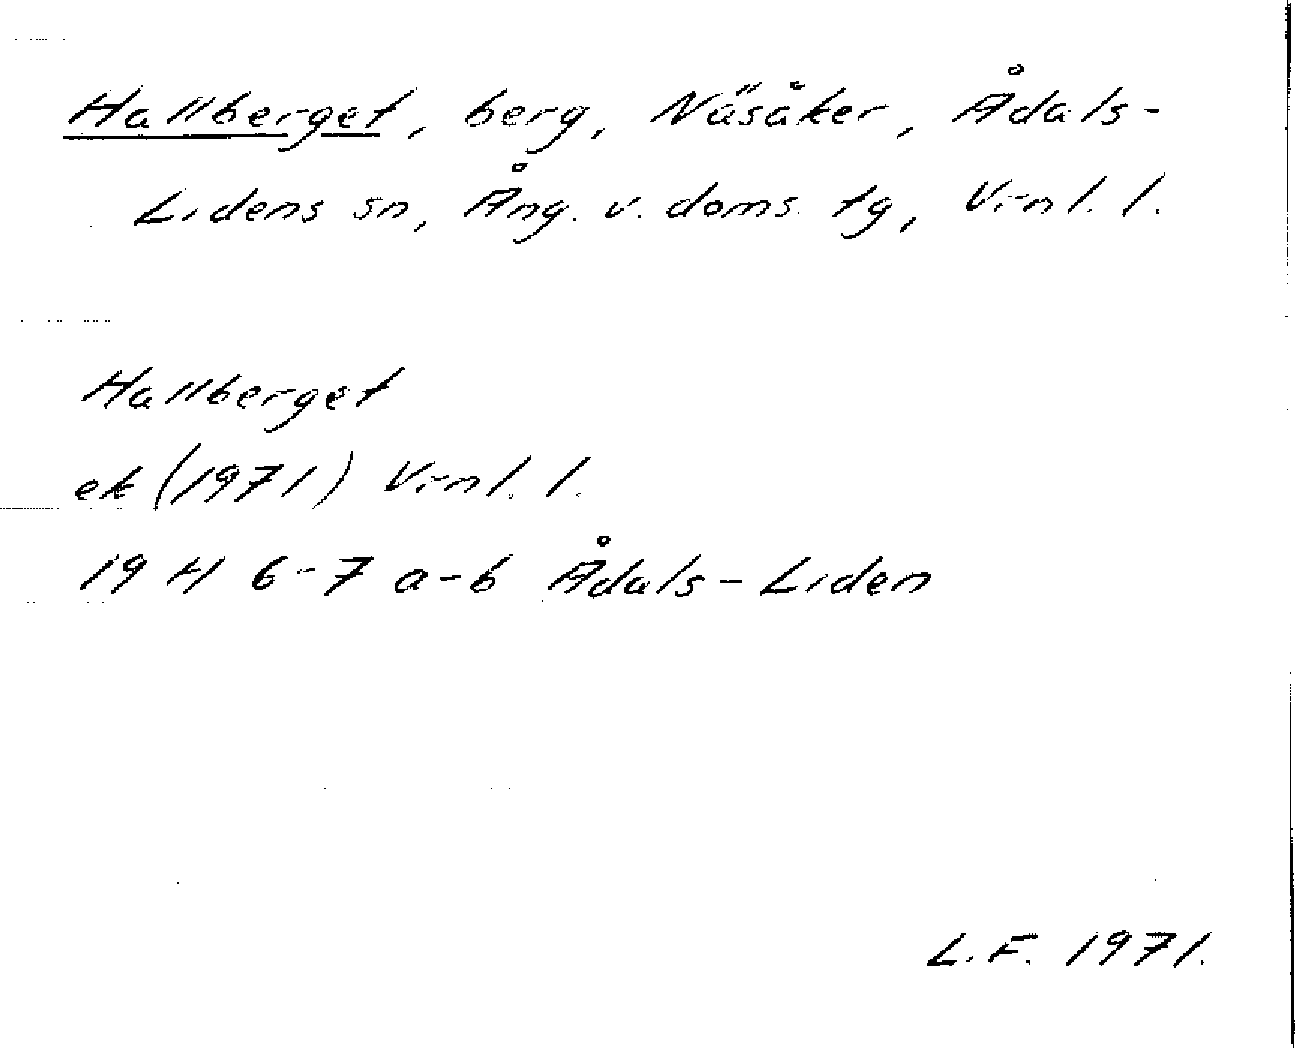 Hallberget, berg, Näsåker, Ådals-
Lidens sn, Ång. v. doms. tg, Vrnl. l.
Hallberget
ek (1971) Vrnl. l.
19 H 6-7 a-b Ådals-Liden
L.F. 1971.